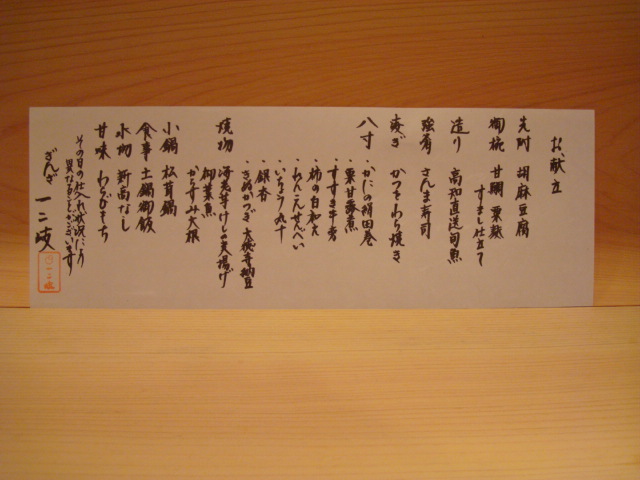 お献立
先附 胡麻豆腐
御椀 甘鯛 粟麩
すまし仕立て
造り 高知直送旬魚
強肴 さんま寿司
凌ぎ かつをわら焼き
八寸 ・かにの絹田巻
・栗甘露煮
・すすき牛蒡
・柿の白和え
・れんこんせんべい
・いちょう丸十
・銀杏
・きぬかつぎ 大徳寺納豆
焼物 海老芋けしの実揚げ
柳葉魚
からすみ大根
小鍋 松茸鍋
食事 土鍋御飯
水物 新高なし
甘味 わらびもち
その日の仕入れ状況により
異なることがございます
ぎんざ 一二岐